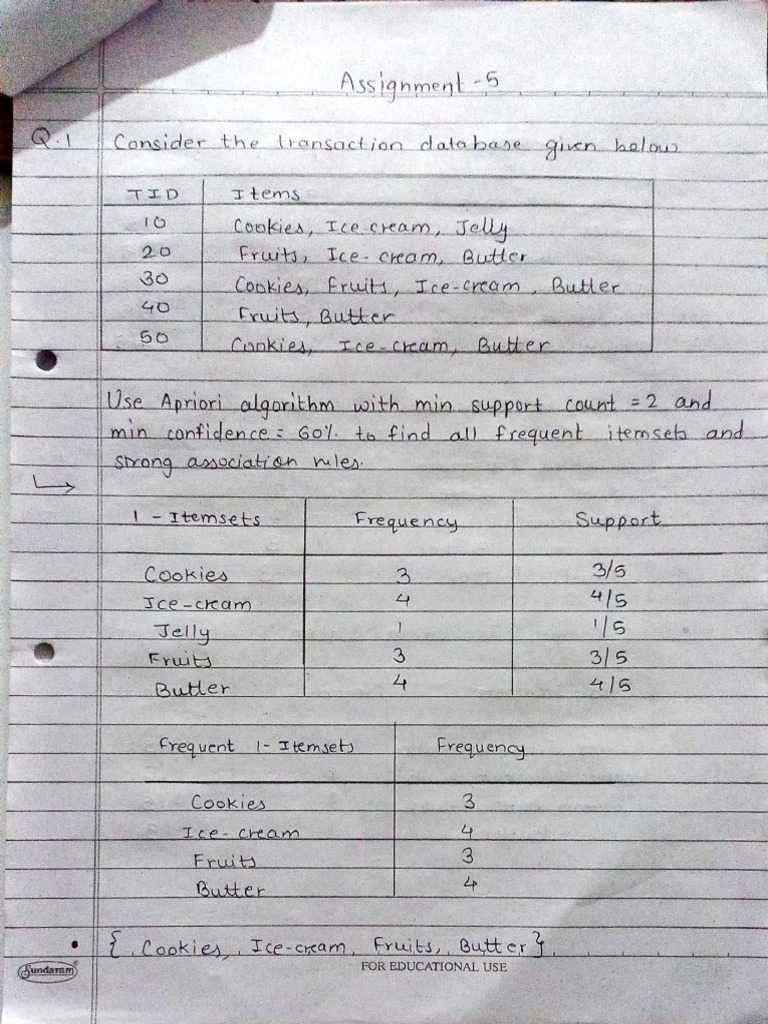 Assignment - 5
Q.1 Consider the transaction database given below
TID Items
10 Cookies, Ice cream, Jelly
20 Fruits, Ice-cream, Butter
30 Cookies, Fruits, Ice-cream, Butter
40 Fruits, Butter
50 Cookies, Ice-cream, Butter
Use Apriori algorithm with min support count = 2 and
min confidence = 60% to find all frequent itemsets and
strong association rules.
1 - Itemsets Frequency Support
Cookies 3 3/5
Ice-cream 4 4/5
Jelly 1 1/5
Fruits 3 3/5
Butter 4 4/5
Frequent 1- Itemsets Frequency
Cookies 3
Ice-cream 4
Fruits 3
Butter 4
• { Cookies, Ice-cream, Fruits, Butter }
Sundaram FOR EDUCATIONAL USE